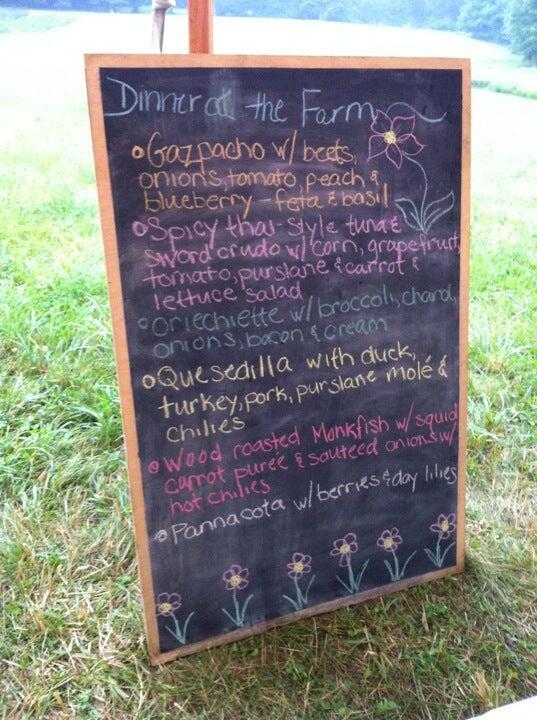 Dinner at the Farm
• Gazpacho w/ beets,
onions, tomato, peach &
blueberry - feta & basil
• Spicy thai-style tuna &
sword crudo w/ corn, grapefruit,
tomato, purslane & carrot &
lettuce salad
• oriechiette w/ broccoli, chard,
onions, bacon & cream
• Quesedilla with duck,
turkey, pork, purslane molé &
chilies
• Wood roasted Monkfish w/ squid
carrot puree & sauteed onions w/
hot chilies
• Pannacota w/ berries & day lilies